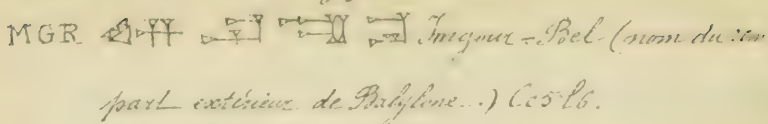 MGR Imgour-Bel (nom du rem
part extérieur de Babylone...) Cc5l6.